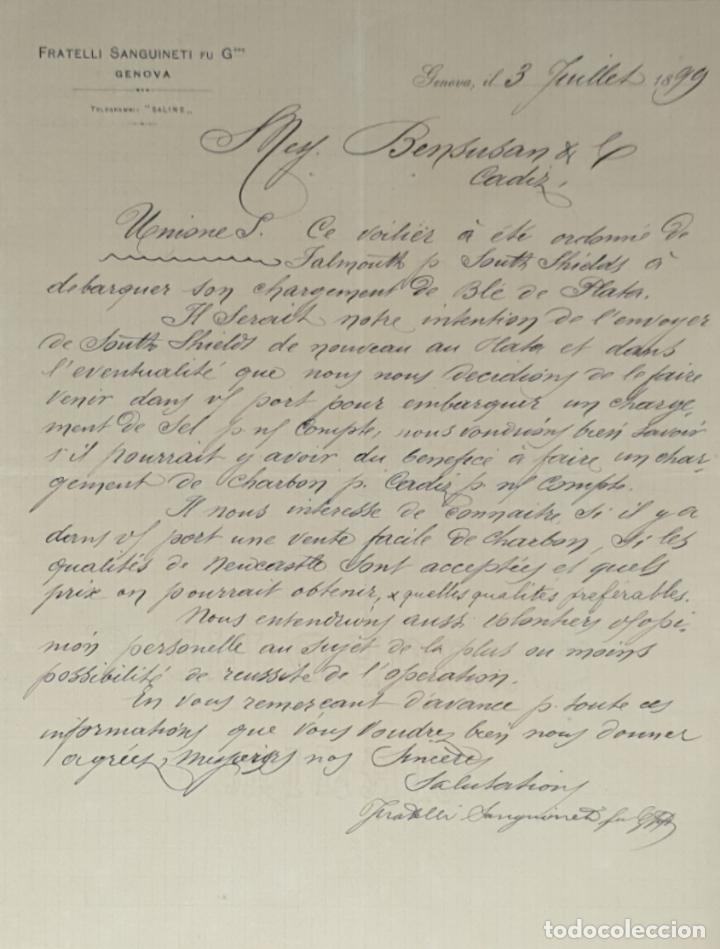 FRATELLI SANGUINETI FU G.
GENOVA
TELEGRAMMI "SALINE"
Genova, il 3 Juillet 1899
Bensusan & C
Cadiz,
Unione S. Ce voilier à été ordonné de
Falmouth p. South Shields à
debarquer son chargement de Blé de Plata.
Il Serait notre intention de l'envoyer
de South Shields de nouveau au Plata et dans
l'eventualité que nous nous decidions de le faire
venir dans v/ port pour embarquer un charge-
ment de Sel p n/ Compte, nous voudrions bien savoir
s'il pourrait y avoir du benefice à faire un char-
gement de Charbon p. Cadiz p n/ Compte.
Il nous interesse de connaitre, si il y a
dans v/ port une vente facile de charbon, si les
qualités de Newcastle sont acceptées et quels
prix on pourrait obtenir, & quelles qualités préférables.
Nous entendrions aussi volontiers v/opi-
nion personelle au sujet de la plus ou moins
possibilité de reussite de l'operation.
En vous remerçant d'avance p. toute ces
informations que vous voudres bien nous donner
agrées, messieurs nos Sincères
Salutations
Fratelli Sanguineti fu G
todocoleccion